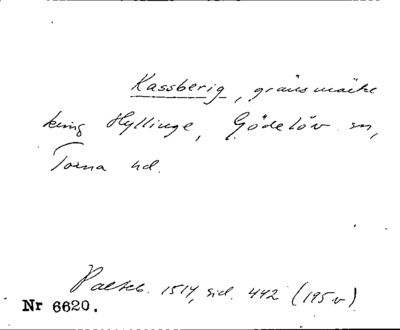 Kassberig, gränsmärke
kring Hyllinge, Gödelöv sn,
Torna hd.
Palteb. 1514, sid. 442 (195 v)
Nr 6620.